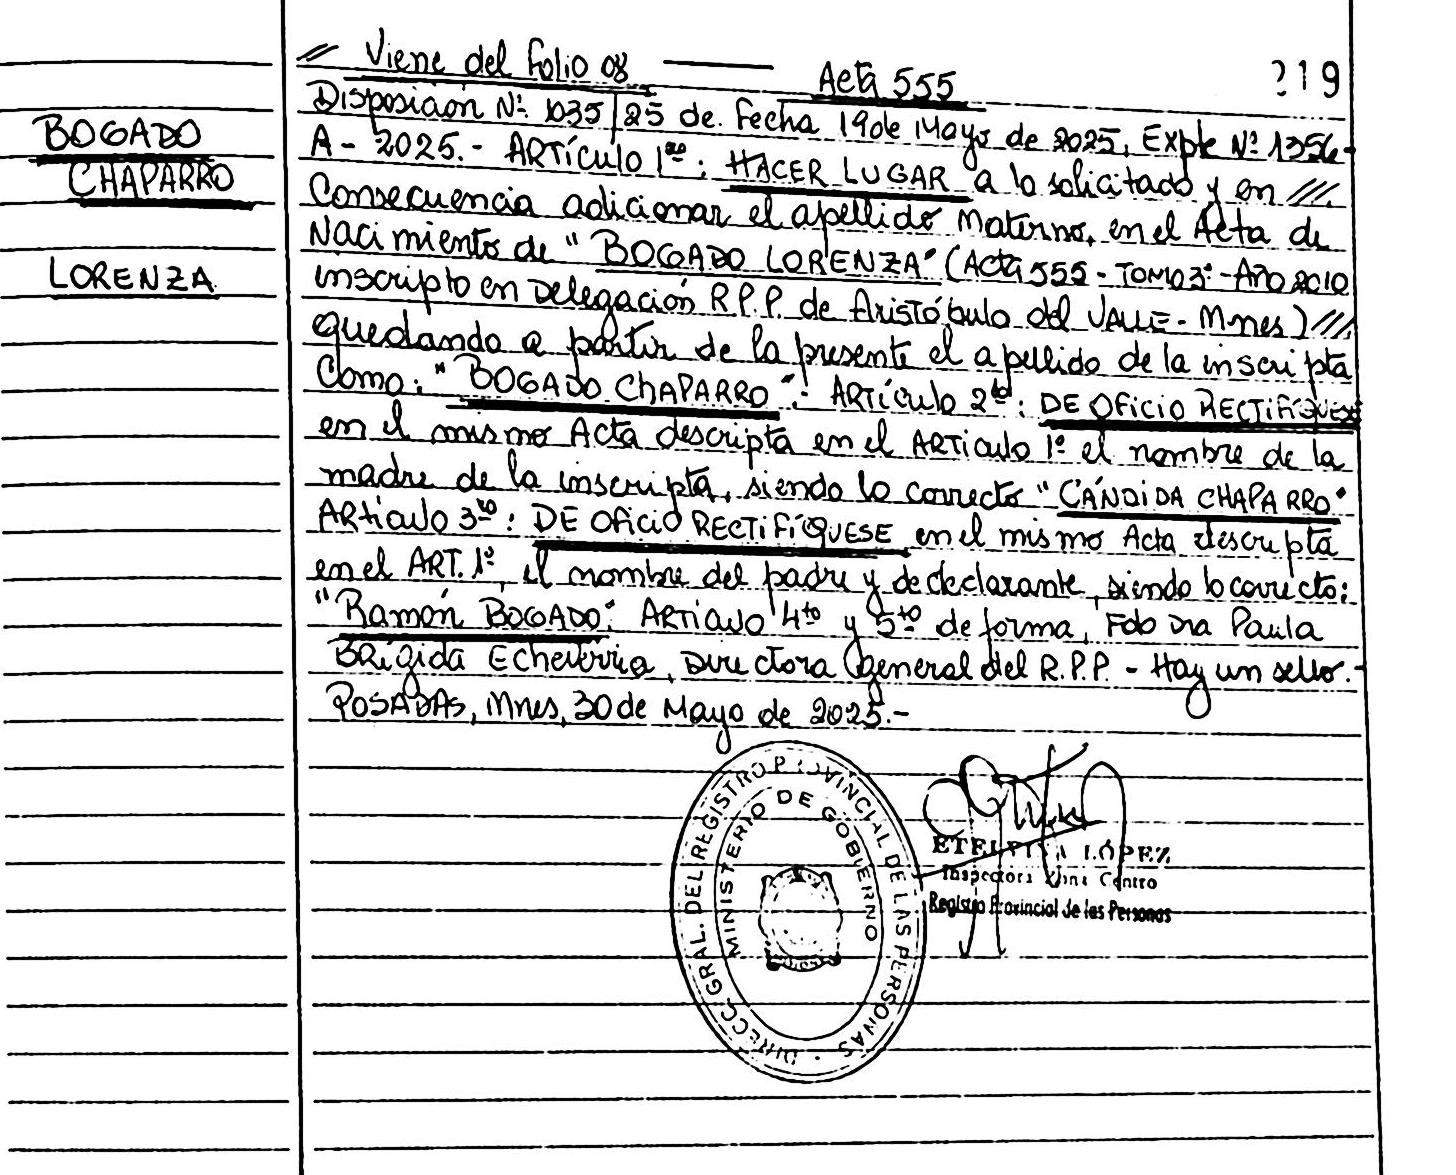 // Viene del folio 08 — Acta 555
219
BOGADO
CHAPARRO
LORENZA
Disposición Nº 1035/25 de Fecha 19 de Mayo de 2025, Expte Nº 1356-
A-2025.- ARTÍCULO 1ro: HACER LUGAR a lo solicitado y en ///
Consecuencia adicionar el apellido Materno, en el Acta de
Nacimiento de "BOGADO LORENZA" (Acta 555 - TOMO 3º - AÑO 2010
inscripto en Delegación R.P.P. de Aristóbulo del VALLE - Mnes) ///
quedando a partir de la presente el apellido de la inscripta
Como: "BOGADO CHAPARRO".- ARTÍCULO 2do: DE OFICIO RECTIFÍQUESE
en el mismo Acta descripta en el ARTICULO 1º el nombre de la
madre de la inscripta, siendo lo correcto "CÁNDIDA CHAPARRO"
ARTICULO 3ro: DE OFICIO RECTIFÍQUESE en el mismo Acta descripta
en el ART. 1º, el nombre del padre y de declarante, siendo lo correcto:
"Ramón BOGADO". ARTICULO 4to y 5to de forma, Fdo Dra Paula
BRÍGIDA Echeverria, Directora General del R.P.P. - Hay un sello.-
POSADAS, Mnes, 30 de Mayo de 2025.-
DIRECC. GRAL. DEL REGISTRO PROVINCIAL DE LAS PERSONAS
MINISTERIO DE GOBIERNO
ETELVINA LÓPEZ
Inspectora Zona Centro
Registro Provincial de las Personas